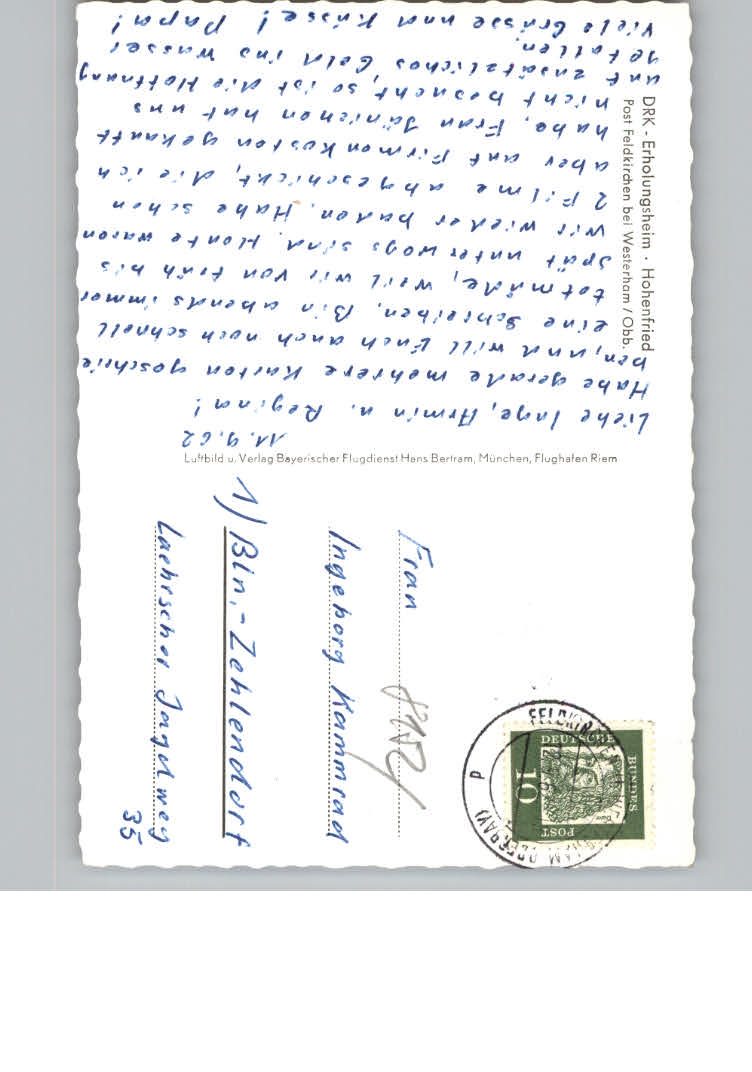 DRK - Erholungsheim · Hohenfried
Post Feldkirchen bei Westerham / Obb.
Luftbild u. Verlag Bayerischer Flugdienst Hans Bertram, München, Flughafen Riem
11.9.62
Liebe Inge, Armin u. Regina!
Habe gerade mehrere Karten geschrie
ben, und will Euch auch noch schnell
eine schreiben. Bin abends immer
totmüde, weil wir von früh bis
spät unterwegs sind. Heute waren
wir wieder baden. Habe schon
2 Filme abgeschickt, die ich
aber auf Firmenkosten gekauft
habe. Frau Jänichen hat uns
nicht besucht, so ist die Hoffnung
auf zusätzliches Geld ins Wasser
gefallen.
Viele Grüsse und Küsse! Papa!
Frau
Ingeborg Kammrad
1) Bln.-Zehlendorf
Laehrscher Jagdweg
35
DEUTSCHE
BUNDES
POST
10
FELDKIRCHEN